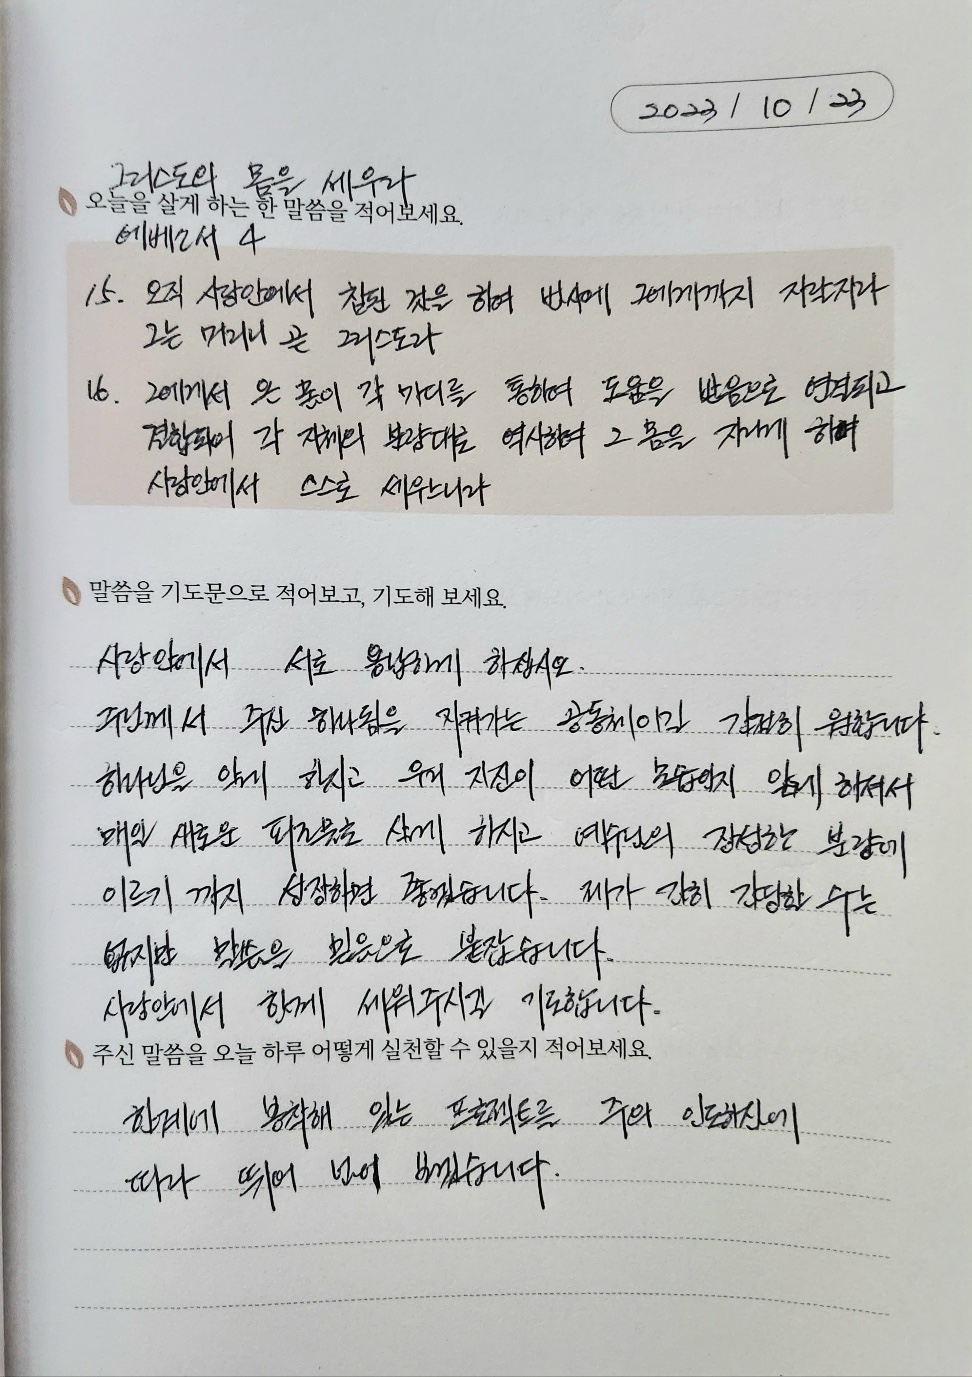 2023/10/23
그리스도의 몸을 세우라
오늘을 살게 하는 한 말씀을 적어보세요.
에베소서 4
15. 오직 사랑안에서 참된 것을 하여 범사에 그에게까지 자랄지라
그는 머리니 곧 그리스도라
16. 그에게서 온 몸이 각 마디를 통하여 도움을 받음으로 연결되고
결합되어 각 지체의 분량대로 역사하여 그 몸을 자라게 하며
사랑안에서 스스로 세우느니라
말씀을 기도문으로 적어보고, 기도해 보세요.
사랑안에서 서로 용납하게 하십시오.
주님께서 주신 하나됨을 지켜가는 공동체이길 간절히 원합니다.
하나님을 알게 하시고 우리 자신이 어떤 모습인지 알게 하셔서
매일 새로운 피조물로 살게 하시고 예수님의 장성한 분량에
이르기 까지 성장하면 좋겠습니다. 제가 감히 감당할 수는
없지만 말씀을 믿음으로 붙잡습니다.
사랑안에서 함께 세워주시길 기도합니다.
주신 말씀을 오늘 하루 어떻게 실천할 수 있을지 적어보세요.
한계에 봉착해 있는 프로젝트를 주의 인도하심에
따라 뛰어 넘어 보겠습니다.